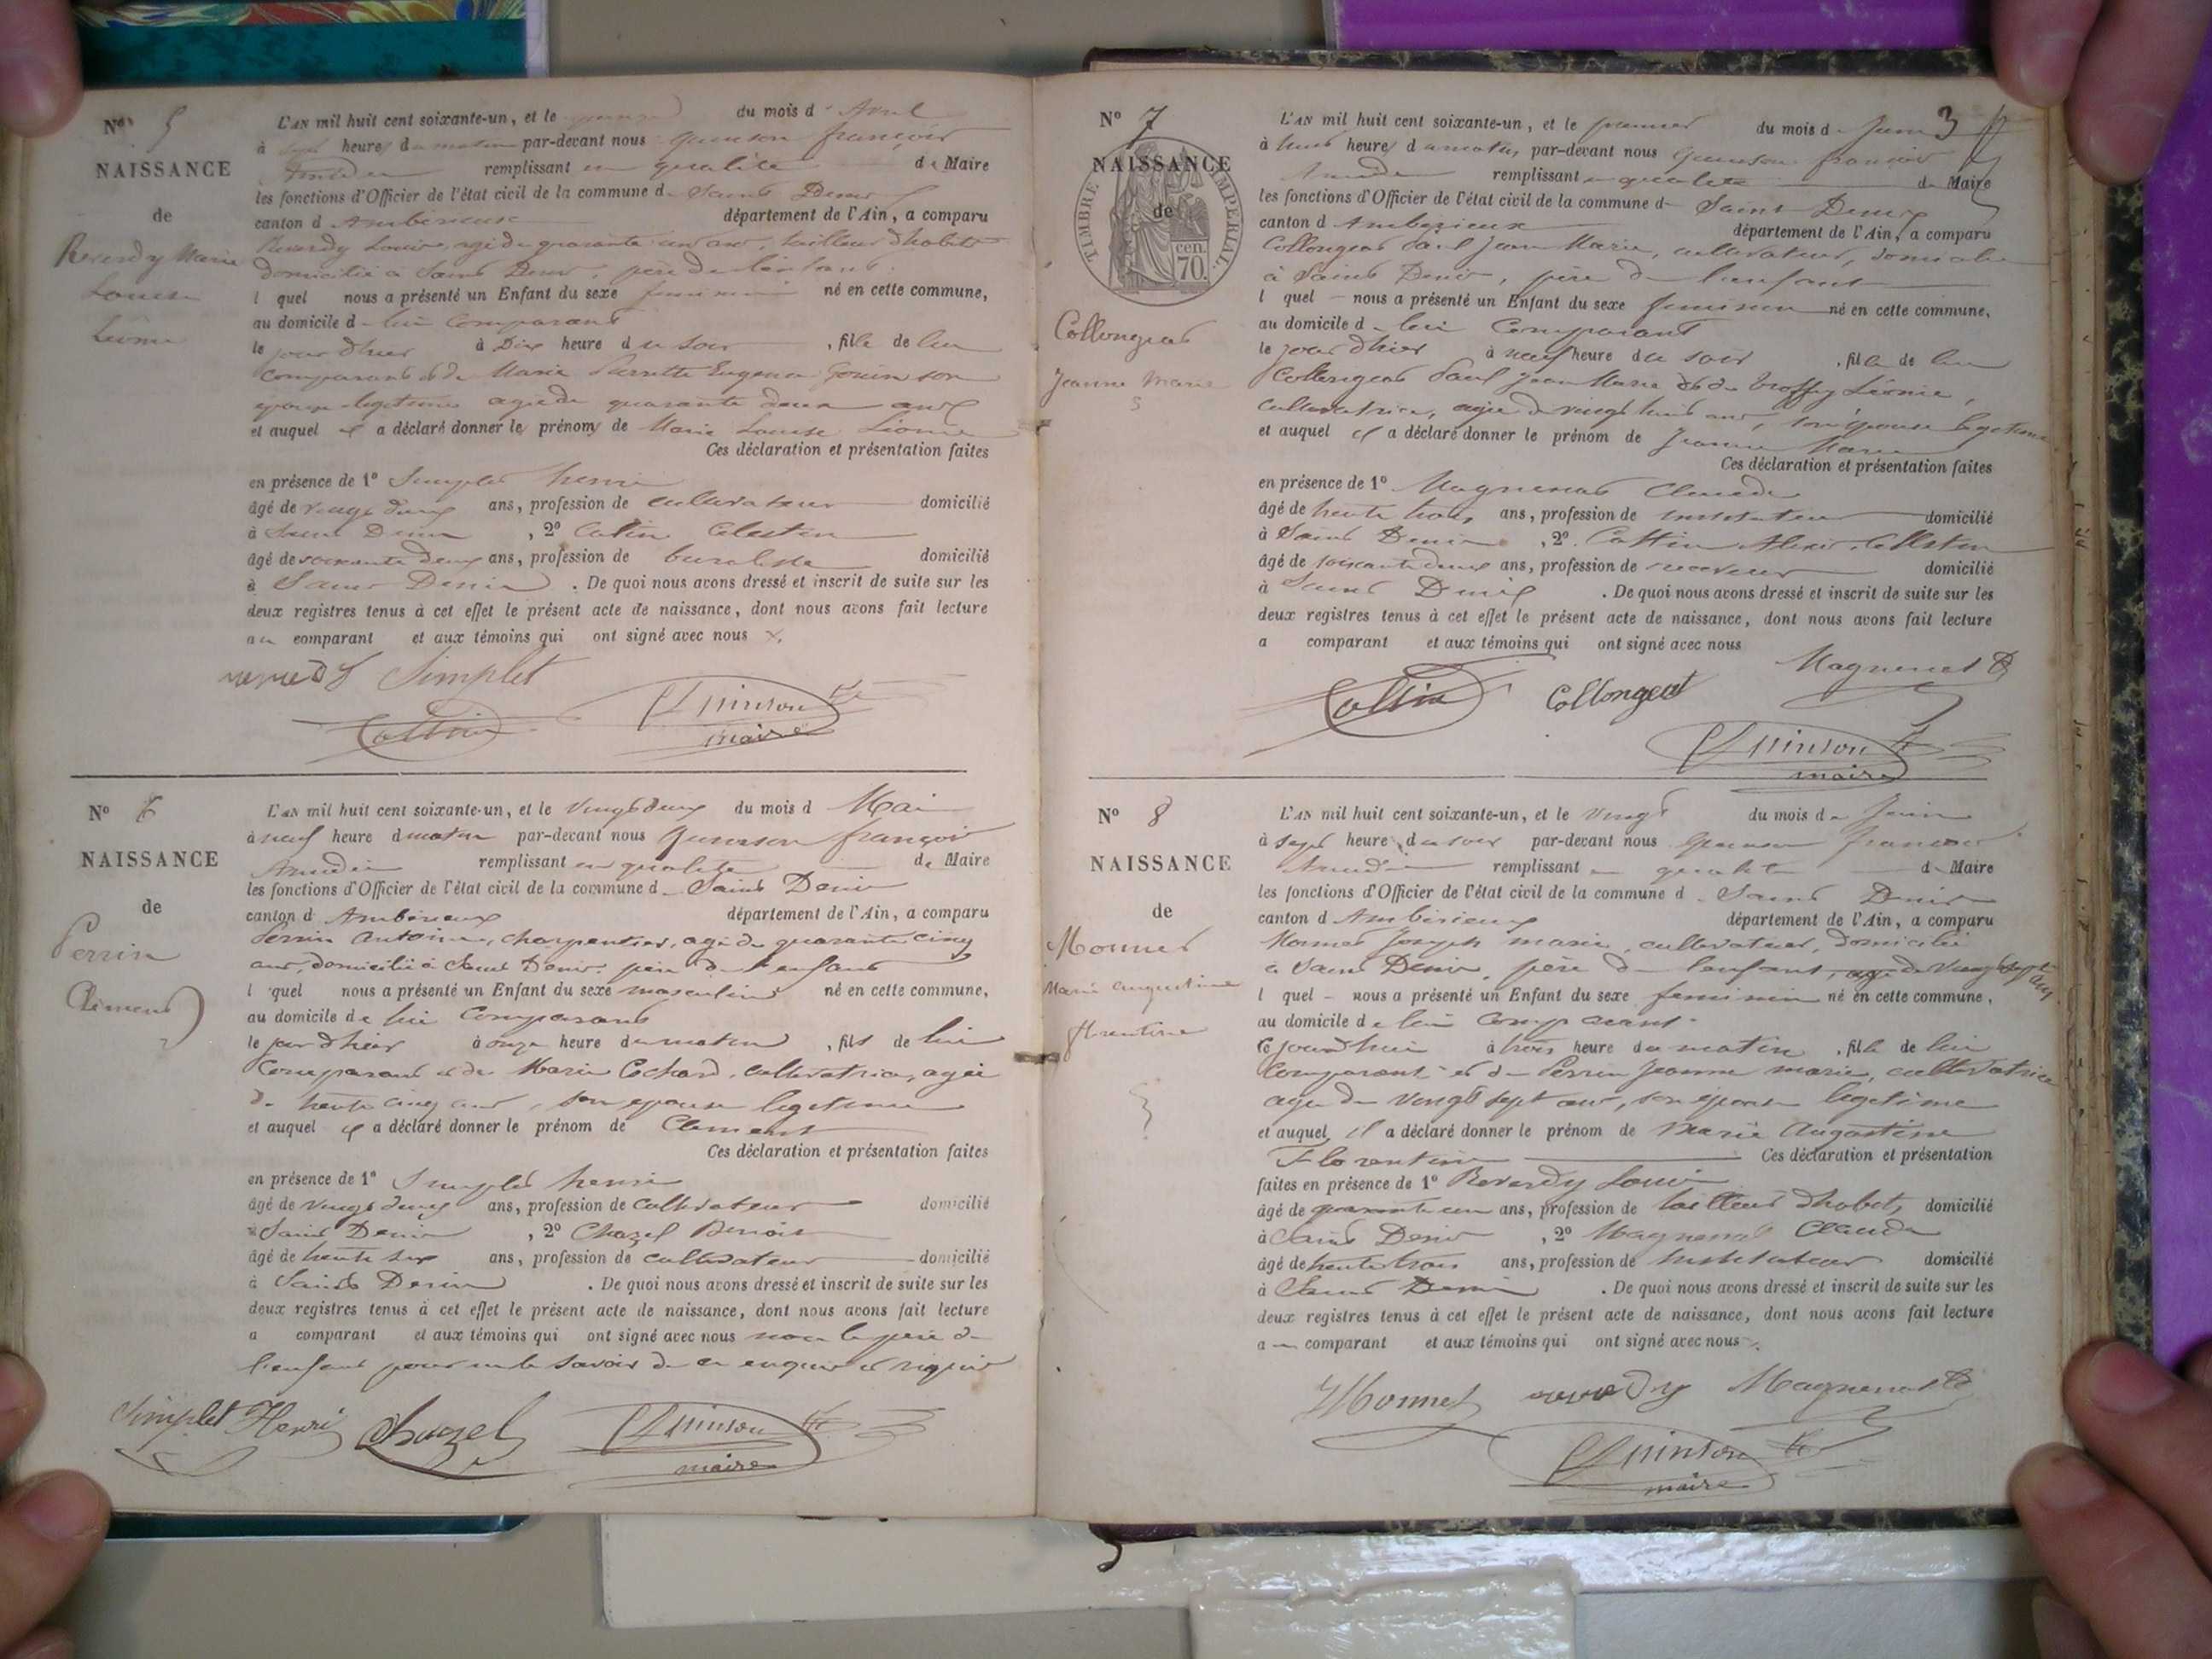 N° 5
NAISSANCE
de
Reverdy Marie
Louise
Léonie
L'AN mil huit cent soixante-un, et le du mois d'Avril
à sept heures du matin par-devant nous Quinson françois
Amédée remplissant en qualité de Maire
les fonctions d'Officier de l'état civil de la commune de Saint Denis
canton d'Ambérieux département de l'Ain, a comparu
Reverdy Louis, agé de quarante un ans, tailleur d'habits
domicilié à Saint Denis, père de l'enfant.
l quel nous a présenté un Enfant du sexe feminin né en cette commune,
au domicile de lui Comparant
le jour d'hier à Dix heure du soir, fille de lui
comparant et de Marie Pierrette Eugenie Gouin son
épouse légitime agée de quarante deux ans
et auquel il a déclaré donner les prénoms de Marie Louise Léonie
Ces déclaration et présentation faites
en présence de 1° Simplet henri
âgé de vingt deux ans, profession de cultivateur domicilié
à Saint Denis, 2° Catin Célestin
âgé de soixante deux ans, profession de buraliste domicilié
à Saint Denis. De quoi nous avons dressé et inscrit de suite sur les
deux registres tenus à cet effet le présent acte de naissance, dont nous avons fait lecture
au comparant et aux témoins qui ont signé avec nous
reverdy Simplet
Cattin Quinson
maire
N° 6
NAISSANCE
de
Perrin
Clément
L'AN mil huit cent soixante-un, et le vingt deux du mois d Mai
à neuf heure du matin par-devant nous Quinson françois
Amédée remplissant en qualité de Maire
les fonctions d'Officier de l'état civil de la commune de Saint Denis
canton d'Ambérieux département de l'Ain, a comparu
Perrin Antoine, charpentier, agé de quarante cinq
ans, domicilié à Saint Denis, père de l'enfant
l quel nous a présenté un Enfant du sexe masculin né en cette commune,
au domicile de lui Comparant
le jour d'hier à onze heure du matin, fils de lui
Comparant et de Marie Cochard, cultivatrice, agée
de trente cinq ans, son épouse légitime
et auquel il a déclaré donner le prénom de Clément
Ces déclaration et présentation faites
en présence de 1° Simplet henri
âgé de vingt deux ans, profession de cultivateur domicilié
à Saint Denis, 2° Chazel Benoit
âgé de trente six ans, profession de cultivateur domicilié
à Saint Denis. De quoi nous avons dressé et inscrit de suite sur les
deux registres tenus à cet effet le présent acte de naissance, dont nous avons fait lecture
a comparant et aux témoins qui ont signé avec nous non le père de
l'enfant pour ne le savoir de ce enquis et requis
Simplet Henri Chazel Quinson
maire
3
N° 7
NAISSANCE
de
TIMBRE IMPERIAL
70 cen.
Collongeat
Jeanne Marie
L'AN mil huit cent soixante-un, et le premier du mois de Juin
à huit heures du matin, par-devant nous Quinson françois
Amédée remplissant en qualité de Maire
les fonctions d'Officier de l'état civil de la commune de Saint Denis
canton d'Ambérieux département de l'Ain, a comparu
Collongeat Paul Jean Marie, cultivateur, domicilié
à Saint Denis, père de l'enfant
l quel nous a présenté un Enfant du sexe feminin né en cette commune,
au domicile de lui Comparant
le jour d'hier à neuf heure du soir, fille de lui
Collongeat Paul Jean Marie et de Léonie,
cultivatrice, agée de vingt huit ans, son épouse légitime
et auquel il a déclaré donner le prénom de Jeanne Marie
Ces déclaration et présentation faites
en présence de 1° Magnenat Claude
âgé de trente trois ans, profession de instituteur domicilié
à Saint Denis, 2° Cattin Alexis Célestin
âgé de soixante deux ans, profession de receveur domicilié
à Saint Denis. De quoi nous avons dressé et inscrit de suite sur les
deux registres tenus à cet effet le présent acte de naissance, dont nous avons fait lecture
a comparant et aux témoins qui ont signé avec nous
Magnenat
Cattin Collongeat
Quinson
maire
N° 8
NAISSANCE
de
Monnet
Marie augustine
florentine
L'AN mil huit cent soixante-un, et le vingt du mois de Juin
à sept heure du soir par-devant nous Quinson francois
Amédée remplissant en qualité de Maire
les fonctions d'Officier de l'état civil de la commune d Saint Denis
canton d'Ambérieux département de l'Ain, a comparu
Monnet Joseph marie, cultivateur, domicilié
à Saint Denis, père de l'enfant, agé de vingt sept ans
l quel nous a présenté un Enfant du sexe feminin né en cette commune,
au domicile de lui comparant
ce jourd'hui à trois heure du matin, fille de lui
Comparant et de Perrin Jeanne marie, cultivatrice
agée de vingt sept ans, son épouse légitime
et auquel il a déclaré donner le prénom de Marie Augustine
Florentine Ces déclaration et présentation
faites en présence de 1° Reverdy Louis
âgé de quarante un ans, profession de tailleur d'habits, domicilié
à Saint Denis, 2° Magnenat Claude
âgé de trente trois ans, profession de instituteur domicilié
à Saint Denis. De quoi nous avons dressé et inscrit de suite sur les
deux registres tenus à cet effet le présent acte de naissance, dont nous avons fait lecture
au comparant et aux témoins qui ont signé avec nous.
Monnet reverdy Magnenat
Quinson
maire